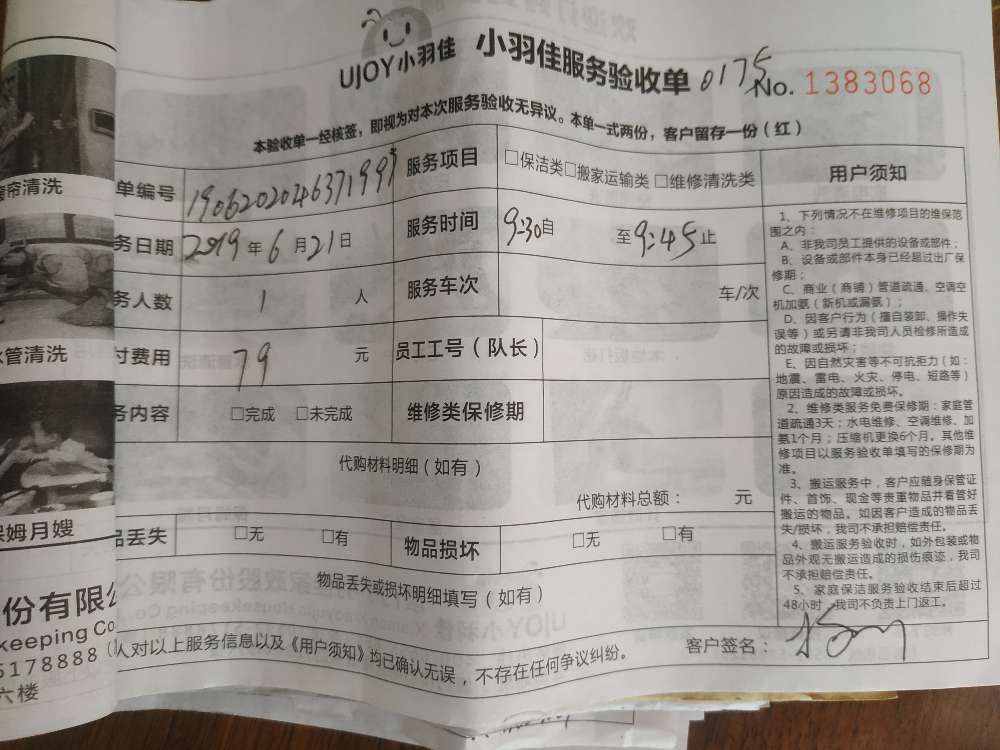 UJOY小羽佳 小羽佳服务验收单 0175 No. 1383068
本验收单一经核签，即视为对本次服务验收无异议。本单一式两份，客户留存一份（红）
单编号 服务项目 □保洁类□搬家运输类 □维修清洗类
务日期 2019年6月21日 服务时间 9:30自 至9:45止
务人数 1 人 服务车次 车/次
付费用 79 元 员工工号（队长）
务内容 □完成 □未完成 维修类保修期
代购材料明细（如有）
代购材料总额： 元
品丢失 □无 □有 物品损坏 □无 □有
物品丢失或损坏明细填写（如有）
人对以上服务信息以及《用户须知》均已确认无误，不存在任何争议纠纷。
客户签名：
用户须知
1、下列情况不在维修项目的维保范
围之内：
A、非我司员工提供的设备或部件；
B、设备或部件本身已经超过出厂保
修期；
C、商业（商铺）管道疏通、空调空
机加氨（新机或漏氨）；
D、因客户行为（擅自装卸、操作失
误等）或另请非我司人员检修所造成
的故障或损坏；
E、因自然灾害等不可抗拒力（如：
地震、雷电、火灾、停电、短路等）
原因造成的故障或损坏。
2、维修类服务免费保修期：家庭管
道疏通3天；水电维修、空调维修、加
氨1个月；压缩机更换6个月。其他维
修项目以服务验收单填写的保修期为
准。
3、搬运服务中，客户应随身保管证
件、首饰、现金等贵重物品并看管好
搬运的物品。如因客户造成的物品丢
失/损坏，我司不承担赔偿责任。
4、搬运服务验收时，如外包装或物
品外观无搬运造成的损伤痕迹，我司
不承担赔偿责任。
5、家庭保洁服务验收结束后超过
48小时，我司不负责上门返工。
帘清洗
水管清洗
保姆月嫂
份有限公
keeping Co
5178888
六楼